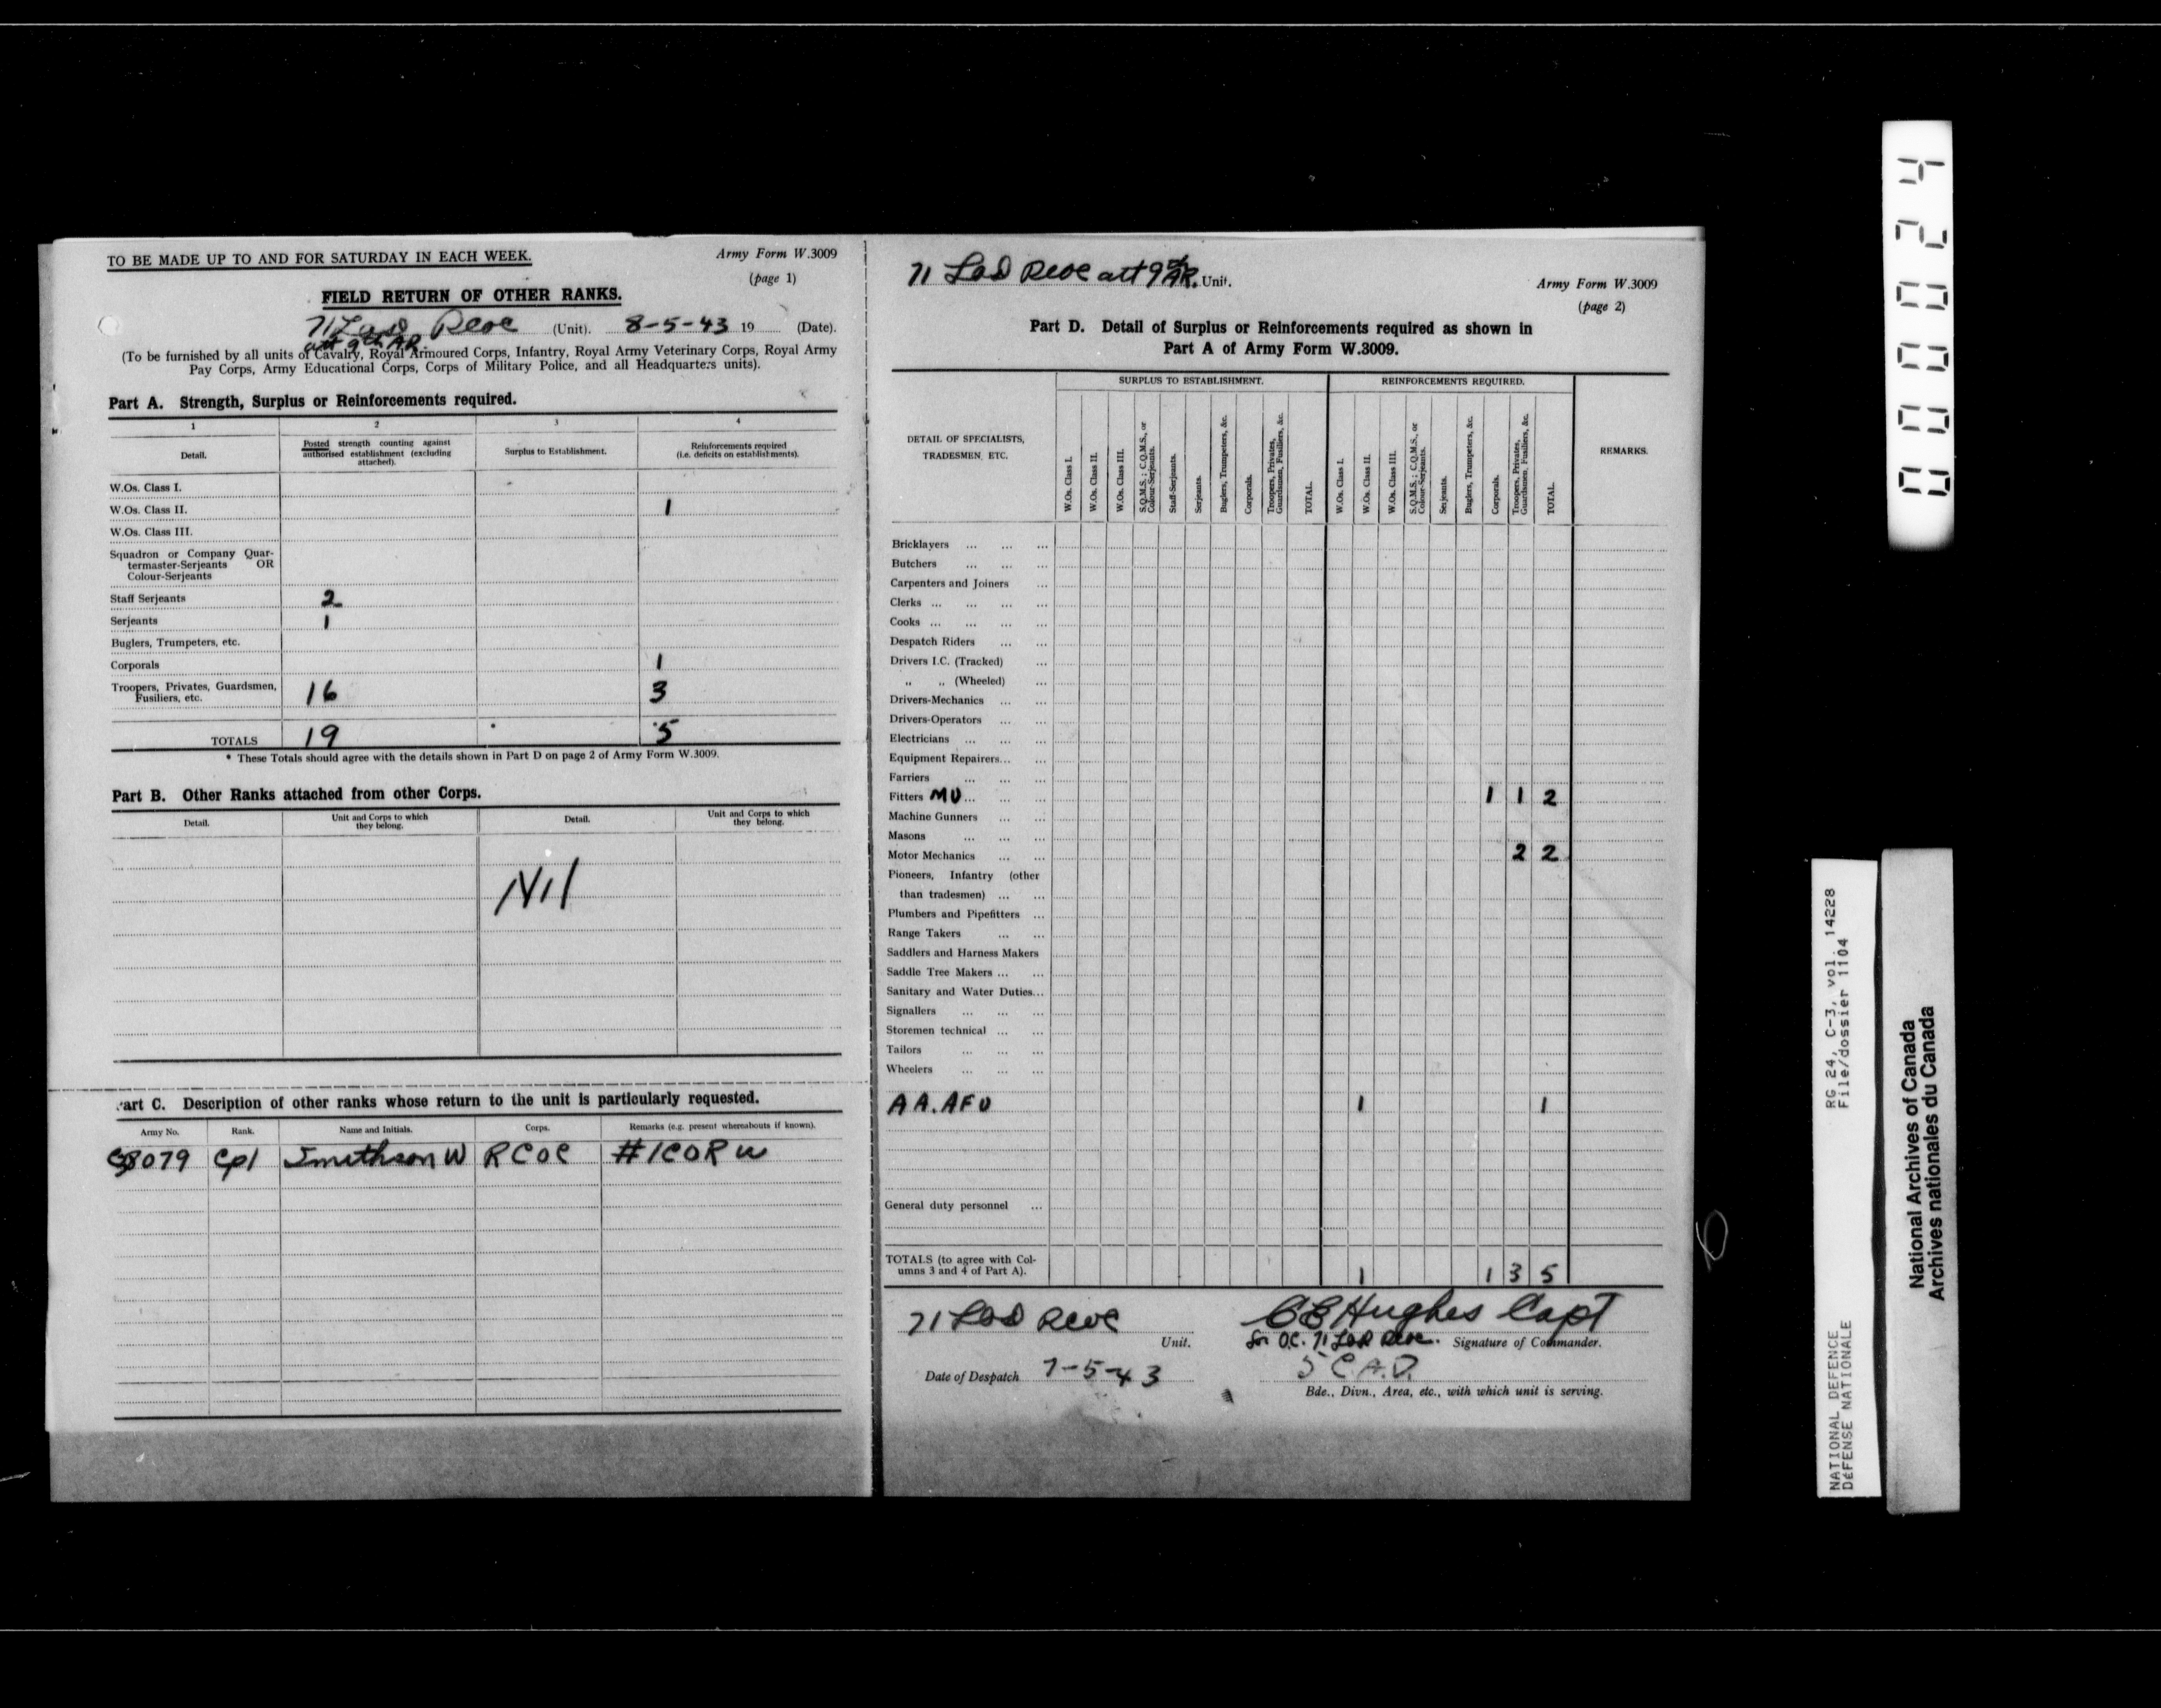 TO BE MADE UP TO AND FOR SATURDAY IN EACH WEEK.
Army Form W.3009
(page 1)
FIELD RETURN OF OTHER RANKS.
71 Lad RCOC (Unit). 8-5-43 19 (Date).
att 9th AR
(To be furnished by all units of Cavalry, Royal Armoured Corps, Infantry, Royal Army Veterinary Corps, Royal Army
Pay Corps, Army Educational Corps, Corps of Military Police, and all Headquarters units).
Part A. Strength, Surplus or Reinforcements required.
1 2 3 4
Detail.
Posted strength counting against
authorised establishment (excluding
attached).
Surplus to Establishment.
Reinforcements required
(i.e. deficits on establishments).
W.Os. Class I.
W.Os. Class II. 1
W.Os. Class III.
Squadron or Company Quar-
termaster-Serjeants OR
Colour-Serjeants
Staff Serjeants 2
Serjeants 1
Buglers, Trumpeters, etc.
Corporals 1
Troopers, Privates, Guardsmen,
Fusiliers, etc. 16 3
TOTALS 19 * 5
* These Totals should agree with the details shown in Part D on page 2 of Army Form W.3009.
Part B. Other Ranks attached from other Corps.
Detail.
Unit and Corps to which
they belong.
Detail.
Unit and Corps to which
they belong.
Nil
art C. Description of other ranks whose return to the unit is particularly requested.
Army No. Rank. Name and Initials. Corps. Remarks (e.g. present whereabouts if known).
8079 Cpl Smithson W RCOC #1CORU
71 Lad RCOC att 9th AR. Unit.
Army Form W.3009
(page 2)
Part D. Detail of Surplus or Reinforcements required as shown in
Part A of Army Form W.3009.
DETAIL OF SPECIALISTS,
TRADESMEN, ETC.
SURPLUS TO ESTABLISHMENT.
W.Os. Class I.
W.Os. Class II.
W.Os. Class III.
S.Q.M.S.; C.Q.M.S., or
Colour-Serjeants.
Staff-Serjeants.
Serjeants.
Buglers, Trumpeters, &c.
Corporals.
Troopers, Privates,
Guardsmen, Fusiliers, &c.
TOTAL.
REINFORCEMENTS REQUIRED.
W.Os. Class I.
W.Os. Class II.
W.Os. Class III.
S.Q.M.S.; C.Q.M.S., or
Colour-Serjeants.
Serjeants.
Buglers, Trumpeters, &c.
Corporals.
Troopers, Privates,
Guardsmen, Fusiliers, &c.
TOTAL.
REMARKS.
Bricklayers ... ... ...
Butchers ... ... ...
Carpenters and Joiners ...
Clerks ... ... ... ...
Cooks ... ... ... ...
Despatch Riders ... ...
Drivers I.C. (Tracked) ...
„ „ (Wheeled) ...
Drivers-Mechanics ... ...
Drivers-Operators ... ...
Electricians ... ... ...
Equipment Repairers... ...
Farriers ... ... ...
Fitters MV... ... ... 1 1 2
Machine Gunners ... ...
Masons ... ... ...
Motor Mechanics ... ... 2 2
Pioneers, Infantry (other
than tradesmen) ... ...
Plumbers and Pipefitters ...
Range Takers ... ...
Saddlers and Harness Makers
Saddle Tree Makers ... ...
Sanitary and Water Duties...
Signallers ... ... ...
Storemen technical ... ...
Tailors ... ... ...
Wheelers ... ... ...
AA.AFV 1 1
General duty personnel ...
TOTALS (to agree with Col-
umns 3 and 4 of Part A). 1 1 3 5
71 Lad RCOC Unit.
CE Hughes Capt
for O.C. 71 LAD RCOC. Signature of Commander.
Date of Despatch 7-5-43
5 C.A.D.
Bde., Divn., Area, etc., with which unit is serving.
000024
RG 24, C-3, vol. 14228
File/dossier 1104
NATIONAL DEFENCE
DÉFENSE NATIONALE
National Archives of Canada
Archives nationales du Canada